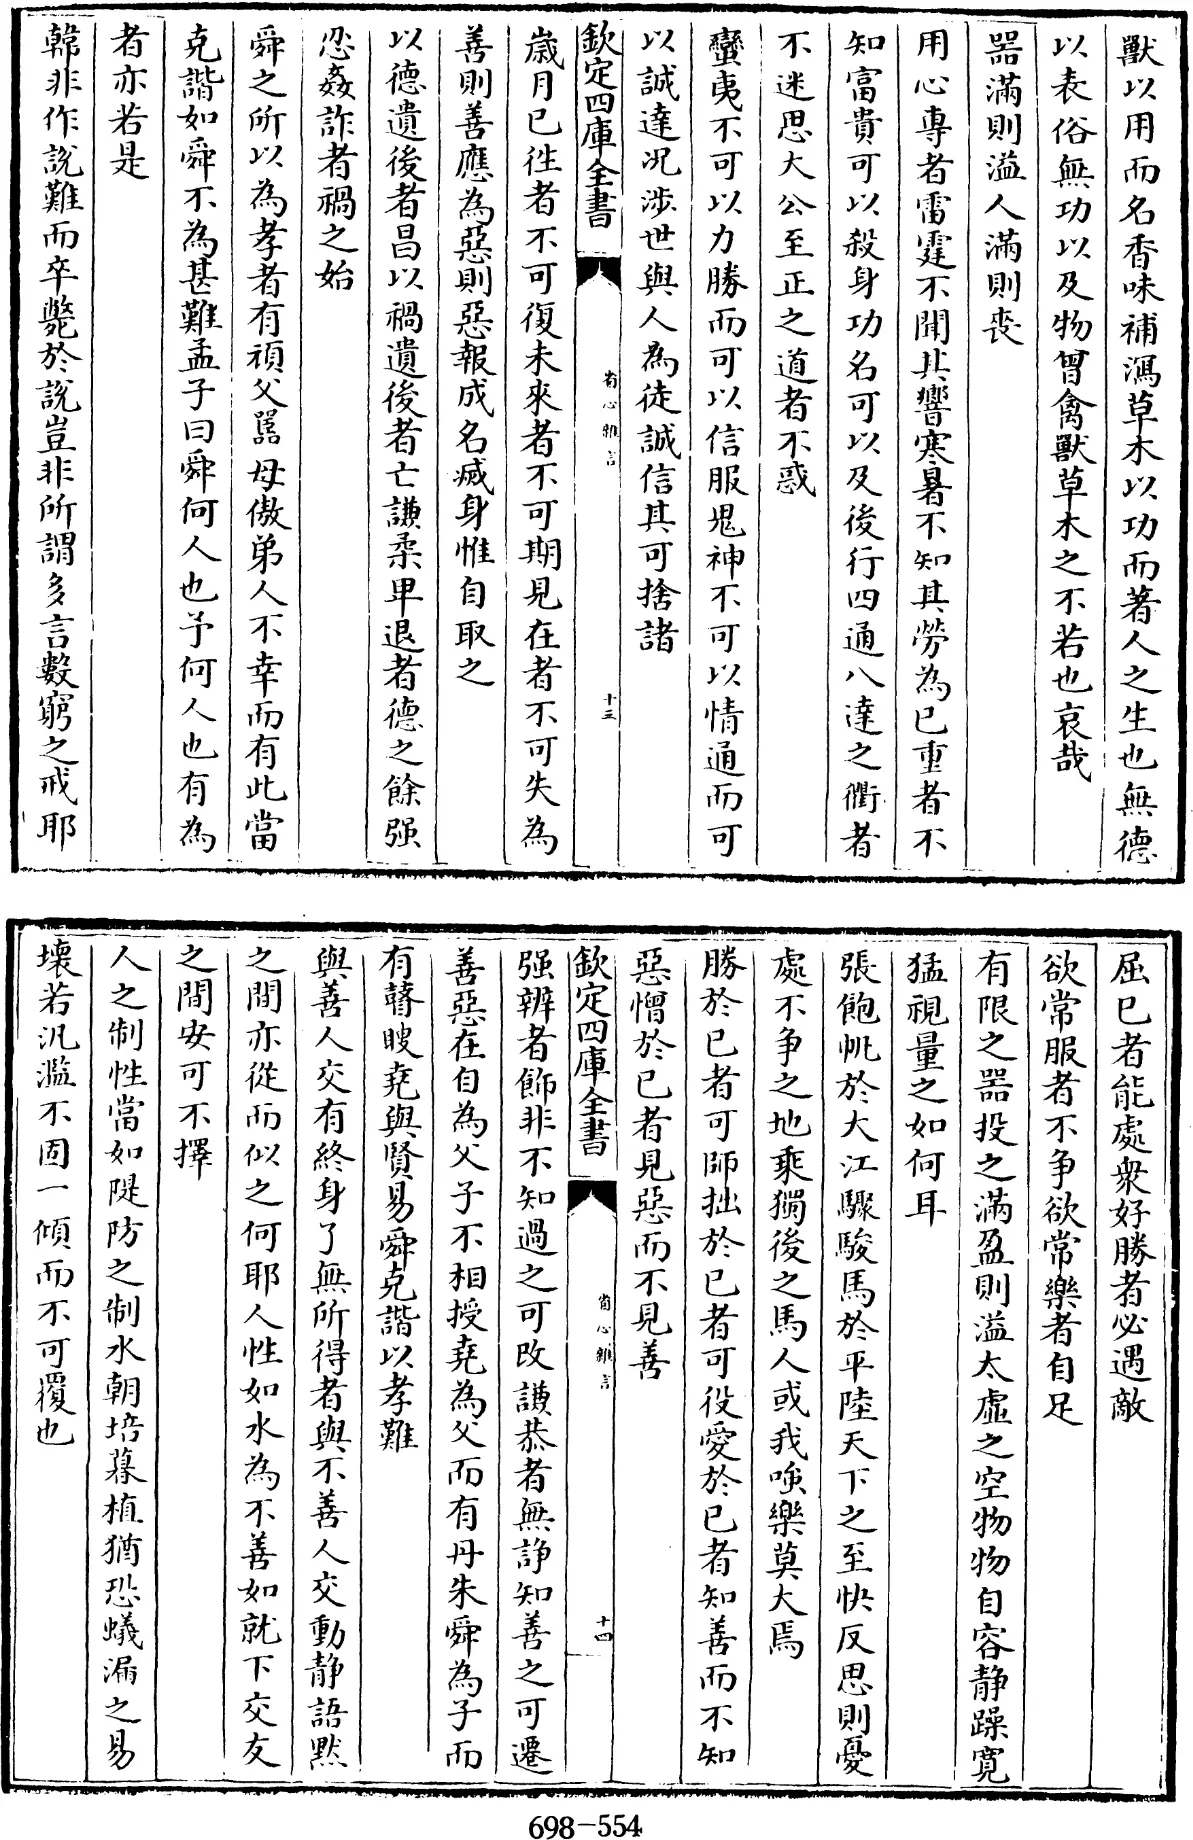 獸以用而名香味補瀉草木以功而著人之生也無德
以表俗無功以及物曾禽獸草木之不若也哀哉
器滿則溢人滿則喪
用心專者雷霆不聞其響寒暑不知其勞為已重者不
知富貴可以殺身功名可以及後行四通八達之衢者
不迷思大公至正之道者不惑
蠻夷不可以力勝而可以信服鬼神不可以情通而可
以誠達況涉世與人為徒誠信其可捨諸
欽定四庫全書
省心雜言
十三
歲月已徃者不可復未來者不可期見在者不可失為
善則善應為惡則惡報成名滅身惟自取之
以德遺後者昌以禍遺後者亡謙柔卑退者德之餘强
忍姦詐者禍之始
舜之所以為孝者有頑父嚚母傲弟人不幸而有此當
克諧如舜不為甚難孟子曰舜何人也予何人也有為
者亦若是
韓非作說難而卒斃於說豈非所謂多言數窮之戒耶
屈已者能處衆好勝者必遇敵
欲常服者不争欲常樂者自足
有限之器投之滿盈則溢太虛之空物物自容静躁寛
猛視量之如何耳
張飽帆於大江驟駿馬於平陸天下之至快反思則憂
處不争之地乘獨後之馬人或我嗤樂莫大焉
勝於已者可師拙於已者可役愛於已者知善而不知
惡憎於已者見惡而不見善
欽定四庫全書
省心雜言
十四
强辨者飾非不知過之可改謙恭者無諍知善之可遷
善惡在自為父子不相授堯為父而有丹朱舜為子而
有瞽瞍堯與賢易舜克諧以孝難
與善人交有終身了無所得者與不善人交動静語黙
之間亦從而似之何耶人性如水為不善如就下交友
之間安可不擇
人之制性當如隄防之制水朝培暮植猶恐蟻漏之易
壞若汎濫不固一傾而不可覆也
698-554